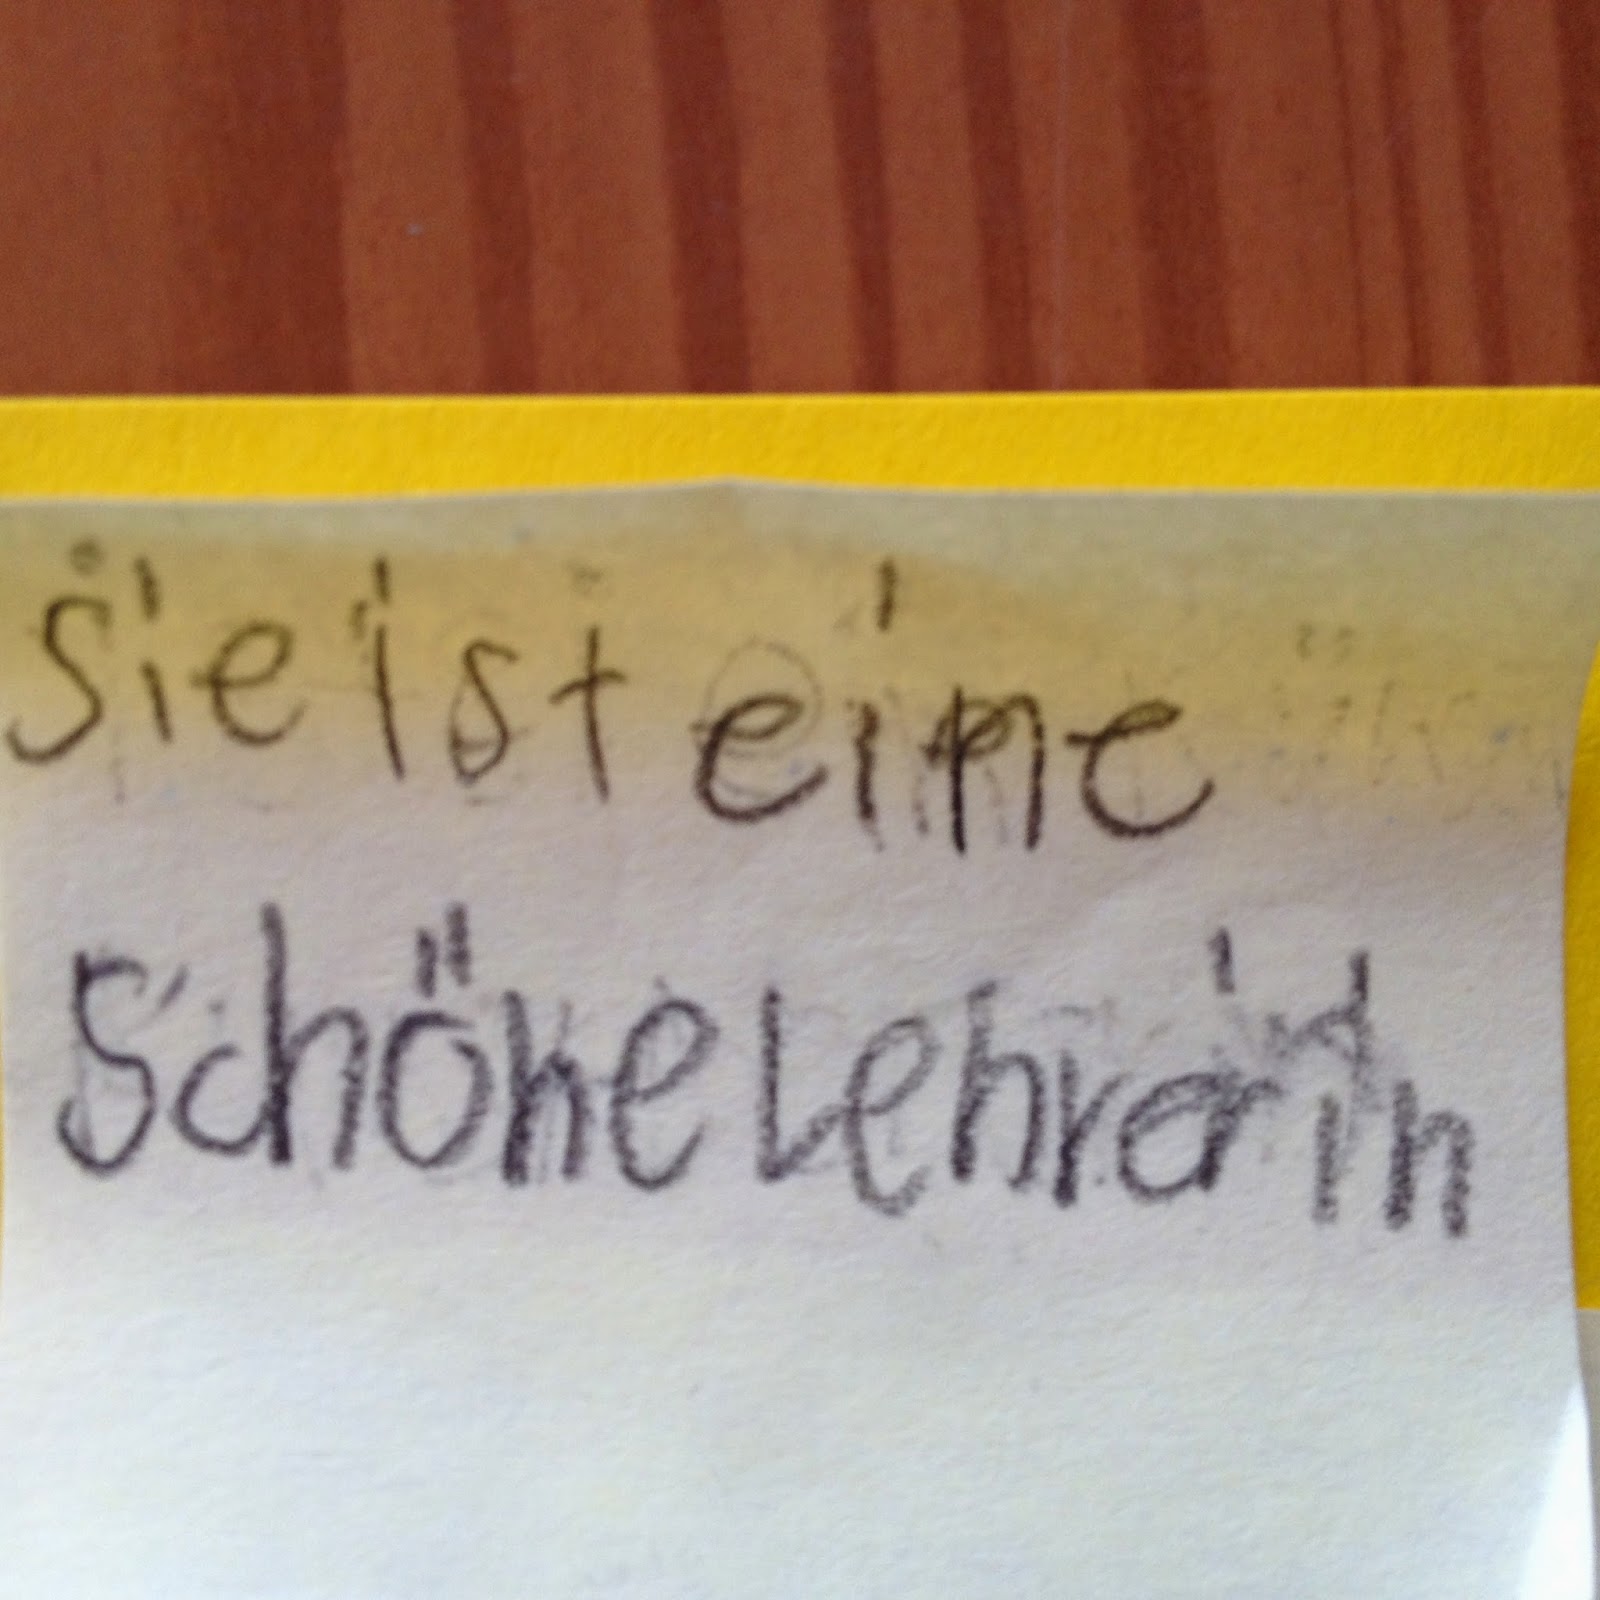 Sie ist eine
schöne Lehrerin